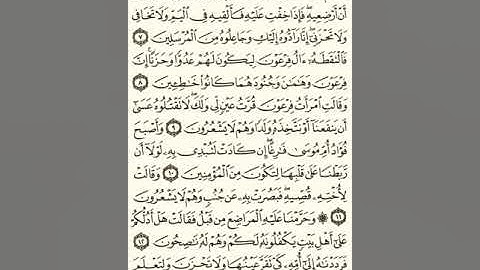 أَنْ أَرْضِعِيهِ ۖ فَإِذَا خِفْتِ عَلَيْهِ فَأَلْقِيهِ فِى ٱلْيَمِّ وَلَا تَخَافِى
وَلَا تَحْزَنِىٓ ۖ إِنَّا رَآدُّوهُ إِلَيْكِ وَجَاعِلُوهُ مِنَ ٱلْمُرْسَلِينَ ٧
فَٱلْتَقَطَهُۥٓ ءَالُ فِرْعَوْنَ لِيَكُونَ لَهُمْ عَدُوًّا وَحَزَنًا ۗ إِنَّ
فِرْعَوْنَ وَهَٰمَٰنَ وَجُنُودَهُمَا كَانُوا۟ خَٰطِـِٔينَ ٨
وَقَالَتِ ٱمْرَأَتُ فِرْعَوْنَ قُرَّتُ عَيْنٍ لِّى وَلَكَ ۖ لَا تَقْتُلُوهُ عَسَىٰٓ
أَن يَنفَعَنَآ أَوْ نَتَّخِذَهُۥ وَلَدًا وَهُمْ لَا يَشْعُرُونَ ٩ وَأَصْبَحَ
فُؤَادُ أُمِّ مُوسَىٰ فَٰرِغًا ۖ إِن كَادَتْ لَتُبْدِى بِهِۦ لَوْلَآ أَن
رَّبَطْنَا عَلَىٰ قَلْبِهَا لِتَكُونَ مِنَ ٱلْمُؤْمِنِينَ ١٠ وَقَالَتْ
لِأُخْتِهِۦ قُصِّيهِ ۖ فَبَصُرَتْ بِهِۦ عَن جُنُبٍ وَهُمْ لَا يَشْعُرُونَ
١١ ۞ وَحَرَّمْنَا عَلَيْهِ ٱلْمَرَاضِعَ مِن قَبْلُ فَقَالَتْ هَلْ أَدُلُّكُمْ
عَلَىٰٓ أَهْلِ بَيْتٍ يَكْفُلُونَهُۥ لَكُمْ وَهُمْ لَهُۥ نَٰصِحُونَ ١٢
فَرَدَدْنَٰهُ إِلَىٰٓ أُمِّهِۦ كَىْ تَقَرَّ عَيْنُهَا وَلَا تَحْزَنَ وَلِتَعْلَمَ